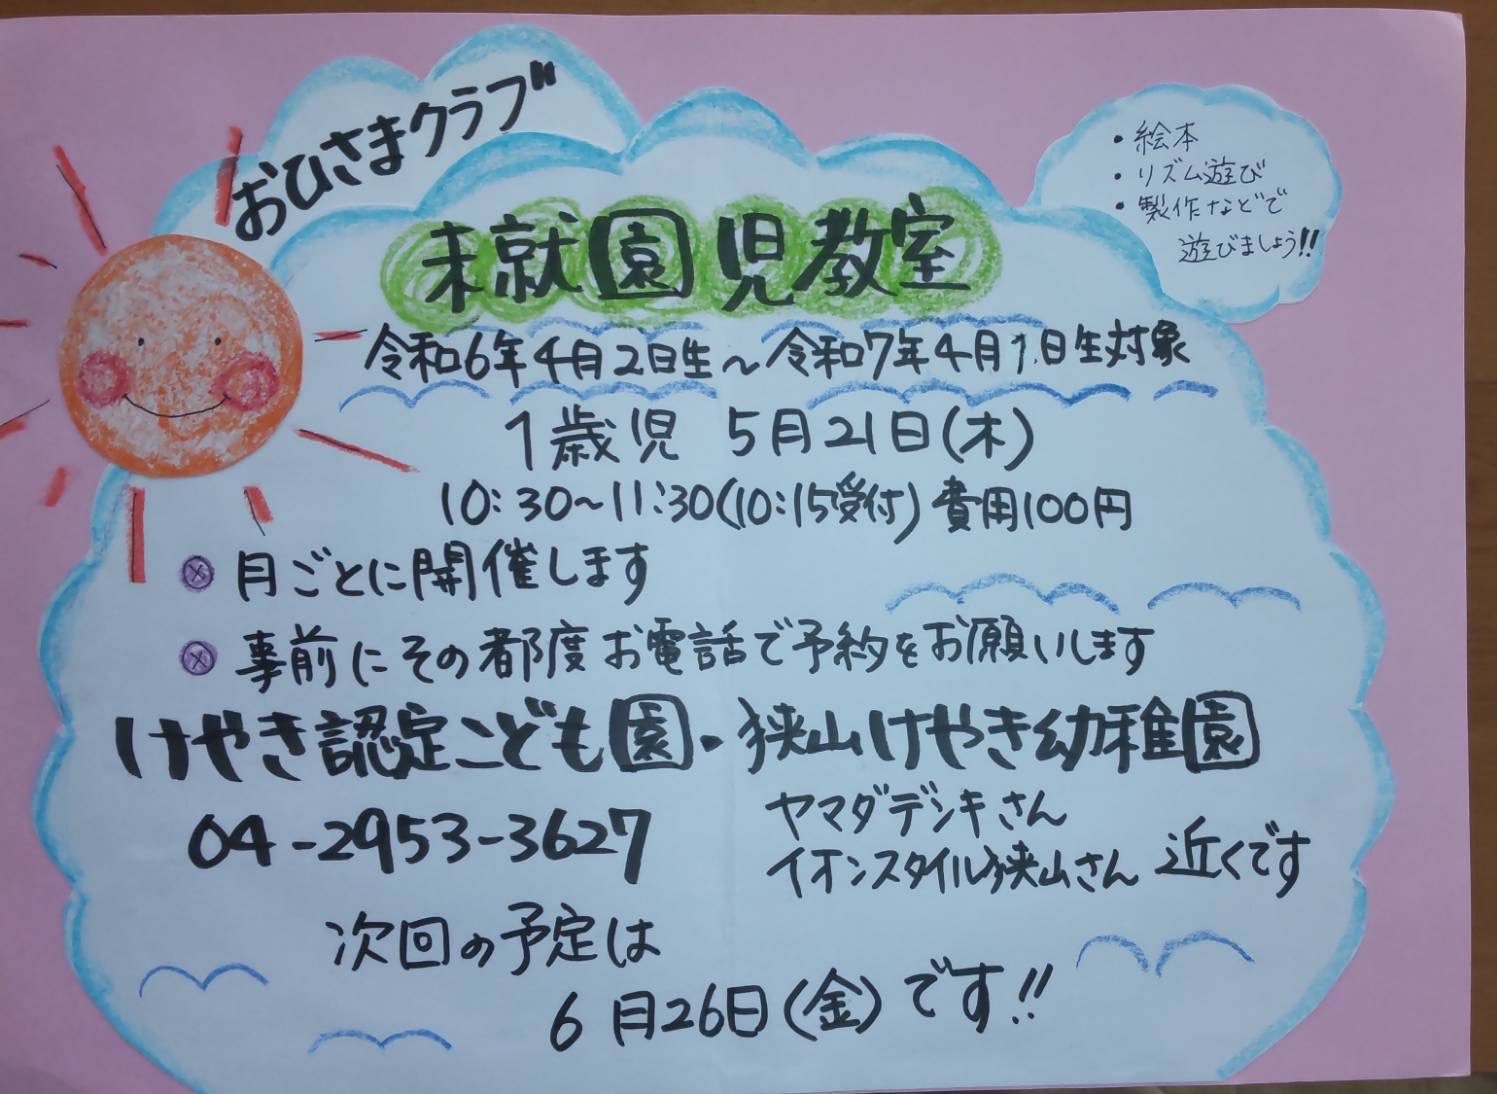 おひさまクラブ
・絵本
・リズム遊び
・製作などで
遊びましょう!!
未就園児教室
令和6年4月2日生～令和7年4月1日生対象
1歳児 5月21日(木)
10:30～11:30(10:15受付)費用100円
月ごとに開催します
事前にその都度お電話で予約をお願いします
けやき認定こども園・狭山けやき幼稚園
04-2953-3627
ヤマダデンキさん
イオンスタイル狭山さん 近くです
次回の予定は
6月26日(金)です!!